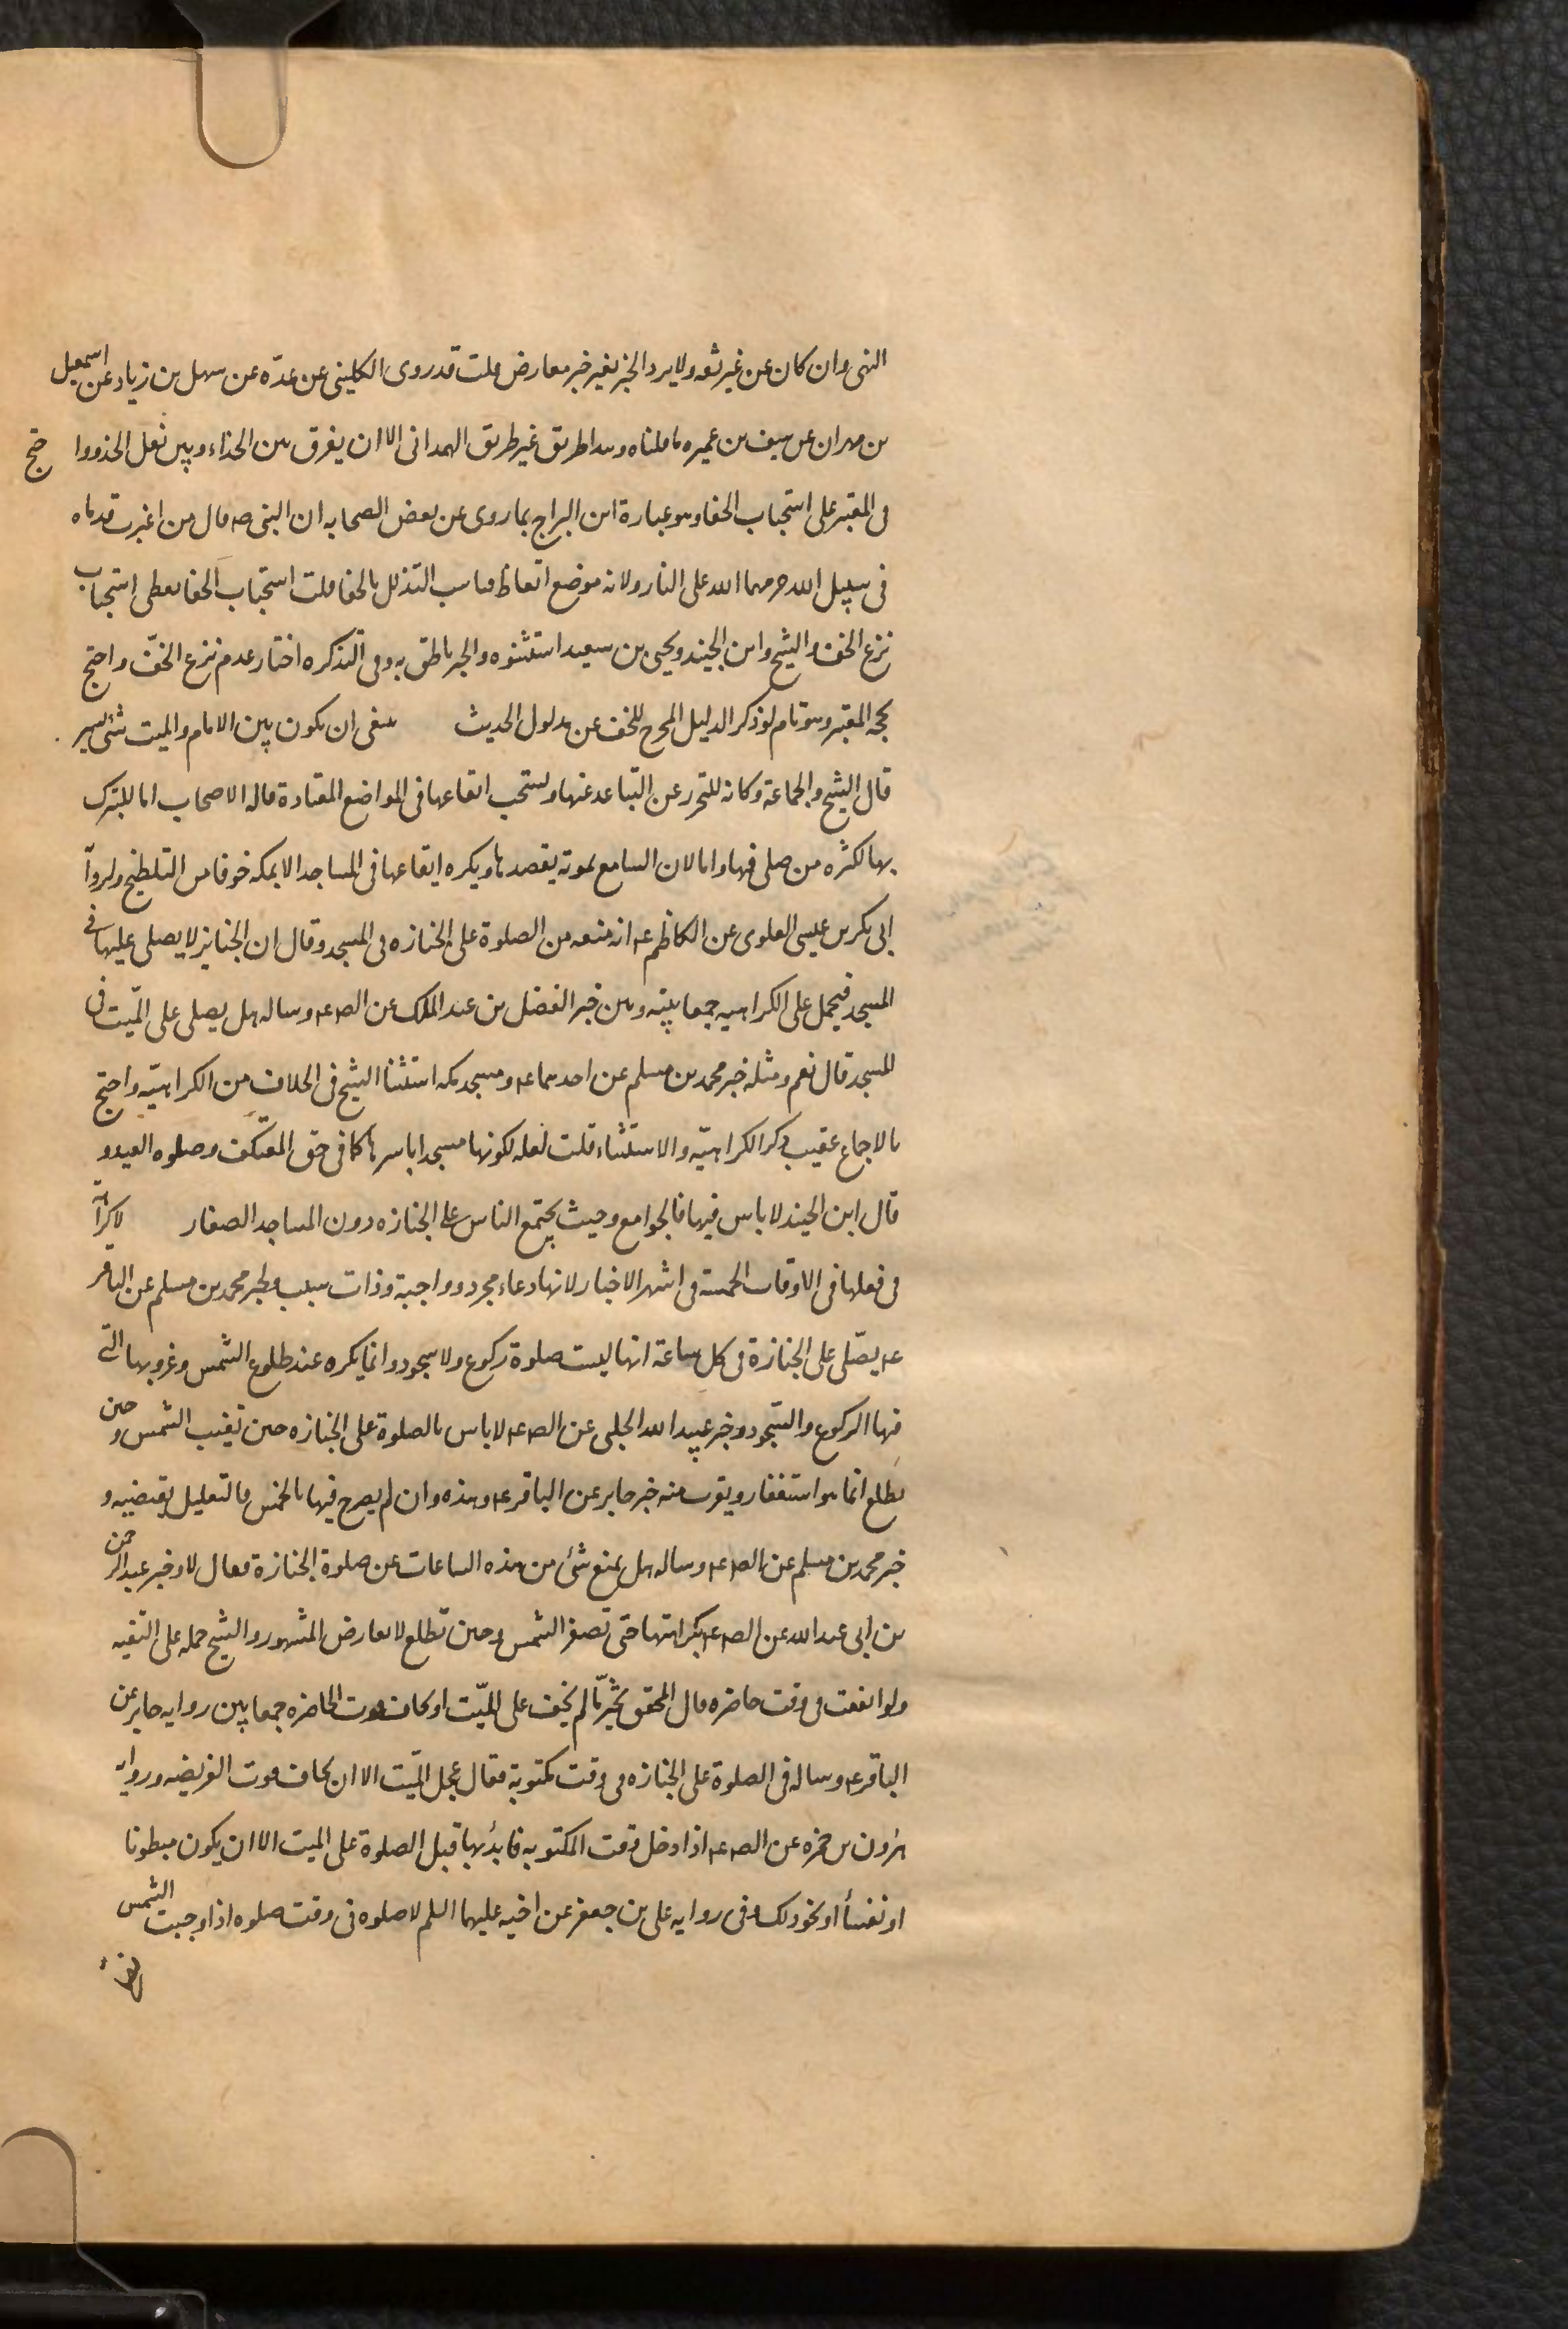 النهى وان كان عن غير ثقه ولا يرد الخبر بغير خبر معارض قلت قد روى الكلينى عن عدّه عن سهل بن زياد عن اسمعيل
بن مهران عن سيف بن عميره ما قلناه وهذا طريق غير طريق الهمدانى الا ان يفرق بين الحذاء وبين نعل الحذو واحتج
فى المعتبر على استحباب الحفا وهو عبارة ابن البراج بما روى عن بعض الصحابه ان النبى صه قال من اغبرت قدماه
فى سبيل الله حرمهما الله على النار ولانه موضع اتعاظ فناسب التذلل بالحفا قلت استحباب الحفا يعطى استحباب
نزع الخف والشيخ وابن الجنيد ويحيى بن سعيد استثنوه والخبر ناطق به وفى التذكره اختار عدم نزع الخفّ واحتج
بحجه المعتبر وهو تام لو ذكر الدليل المخرج للخف عن مدلول الحديث ينبغى ان يكون بين الامام والميت شئ يسير
قال الشيخ والجماعة وكانه للتحرز عن التباعد عنها ويستحب ايقاعها فى المواضع المعتادة قاله الاصحاب اما للتبرك
بها لكثره من صلى فيها واما لان السامع بموته يقصدها ويكره ايقاعها فى المساجد الا بمكه خوفا من التلطيخ ولروآ
ابى بكر بن عيسى العلوى عن الكاظم عه انه منعه من الصلوة على الجنازه فى المسجد وقال ان الجنايز لا يصلى عليها فى
المسجد فيحمل على الكراهيه جمعا بينه وبين خبر الفضل بن عبد الملك عن الصه عه وساله هل يصلى على الميّت فى
المسجد قال نعم ومثله خبر محمد بن مسلم عن احدهما عه ومسجد مكه استثنا الشيخ فى الخلاف من الكراهيّه واحتج
بالاجماع عقيب ذكر الكراهيّه والاستثناء قلت لعله لكونها مسجدا باسرها كما فى حق المعتكف وصلوه العيد و
قال ابن الجنيد لا باس فيها فالجوامع وحيث يجتمع الناس على الجنازه دون المساجد الصغار لا كراهه
فى فعلها فى الاوقات الخمسة فى اشهر الاخبار لانها دعاء مجرد وواجبة وذات سبب ولخبر محمد بن مسلم عن الباقر
عه يصّلى على الجنازة فى كل ساعة انها ليست صلوة ركوع ولا سجود وانما يكره عند طلوع الشمس وغروبها التى
فيها الركوع والسّجود وخبر عبيد الله الحلبى عن الصه عه لا باس بالصلوة على الجنازه حين تغيب الشمس وحين
تطلع انما هو استغفار ويقرب منه خبر جابر عن الباقر عه وهذه وان لم يصرح فيها بالخمس فالتعليل يقتضيه و
خبر محمد بن مسلم عن الصه عه وساله هل يمنع شئ من هذه الساعات عن صلوة الجنازة فقال لا وخبر عبد الرحمن
بن ابى عبد الله عن الصه عه بكراهتها حتى تصفر الشمس وحين تطلع لا يعارض المشهور والشيخ حمله على التقيه
ولو اتفقت فى وقت حاضره قال المحقق يتخيّر ما لم يخف على الميّت او يخاف فوت الحاضره جمعا بين روايه جابر عن
الباقر عه وساله فى الصلوة على الجنازه فى وقت مكتوبة فقال عجل الميّت الا ان يخاف فوت الفريضه وروايه
هرون بن حمزه عن الصه عه اذا دخل وقت المكتوبه فابدأ بها قبل الصلوة على الميت الا ان يكون مبطونا
او نفسأ او نحو ذلك وفى روايه على بن جعفر عن اخيه عليهما السلم لا صلوه فى وقت صلوه اذا وجبت الشمس